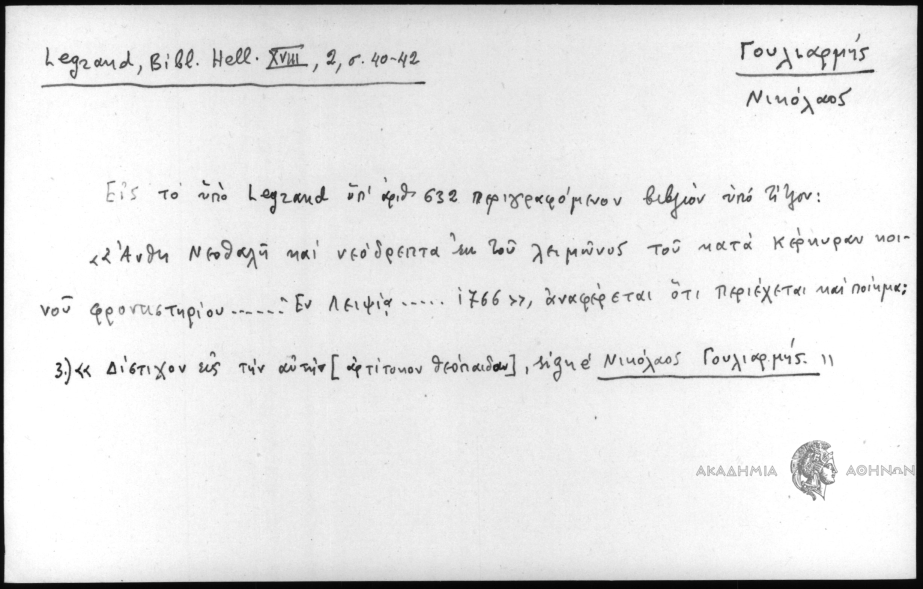 Legrand, Bibl. Hell. XVIII, 2, σ. 40-42
Γουλιαρμής
Νικόλαος
Εἰς τὸ ὑπὸ Legrand ὑπ' ἀριθ 632 περιγραφόμενον βιβλίον ὑπό τίτλον:
«Ἄνθη Νεοθαλῆ καί νεόδρεπτα ἐκ τοῦ λειμῶνος τοῦ κατά Κέρκυραν κοι-
νοῦ φροντιστηρίου ....... Ἐν Λειψίᾳ ..... 1766», ἀναφέρεται ὅτι περιέχεται καί ποίημα:
3.) « Δίστιχον εἰς τήν αὐτήν [ἀρτίτοκον θεόπαιδα], Νικόλαος Γουλιαρμής. »
ΑΚΑΔΗΜΙΑ ΑΘΗΝΩΝ